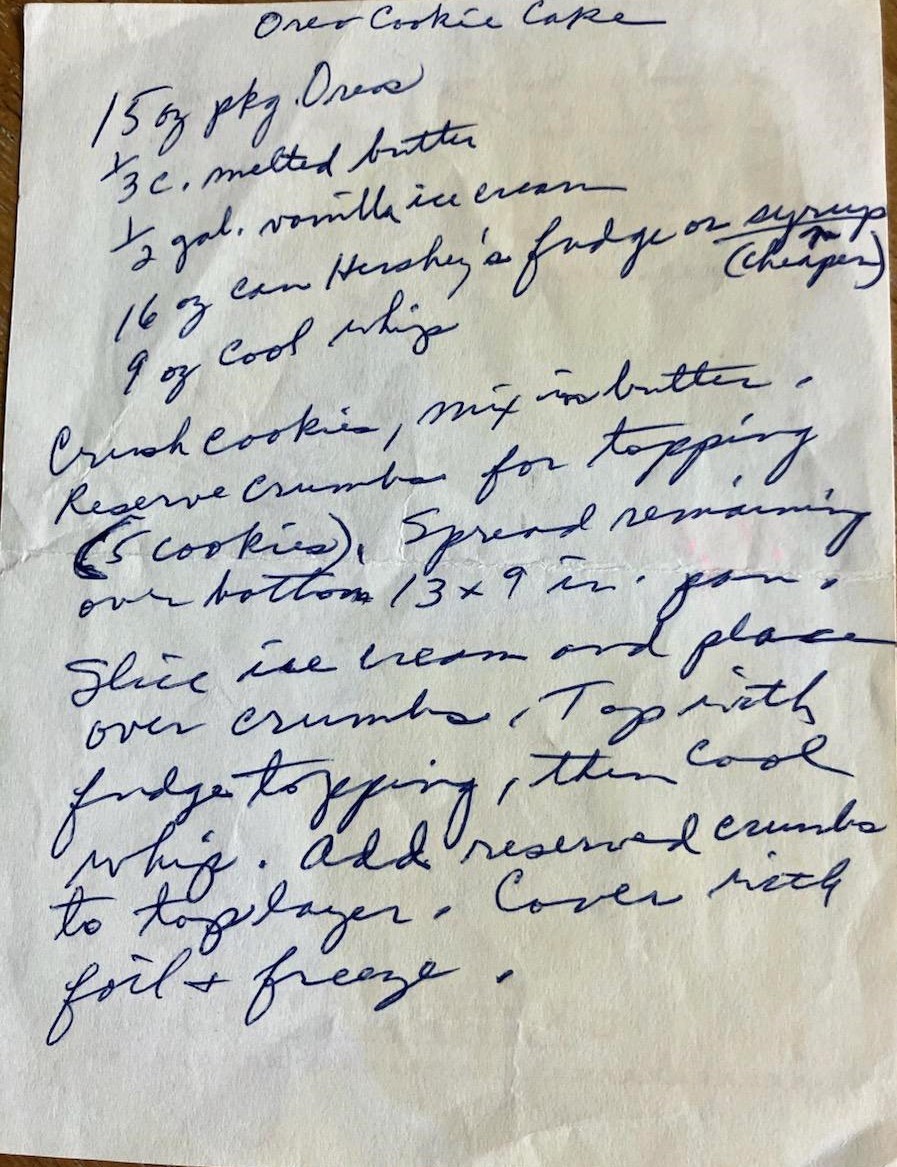 Oreo Cookie Cake
15 oz pkg. Oreos
1/3 c. melted butter
1/2 gal. vanilla ice cream
16 oz can Hershey's fudge or syrup
(cheaper)
9 oz Cool whip
Crush cookies, mix in butter.
Reserve crumbs for topping
(5 cookies). Spread remaining
over bottom 13 x 9 in. pan.
Slice ice cream and place
over crumbs. Top with
fudge topping, then Cool
whip. Add reserved crumbs
to top layer. Cover with
foil + freeze.